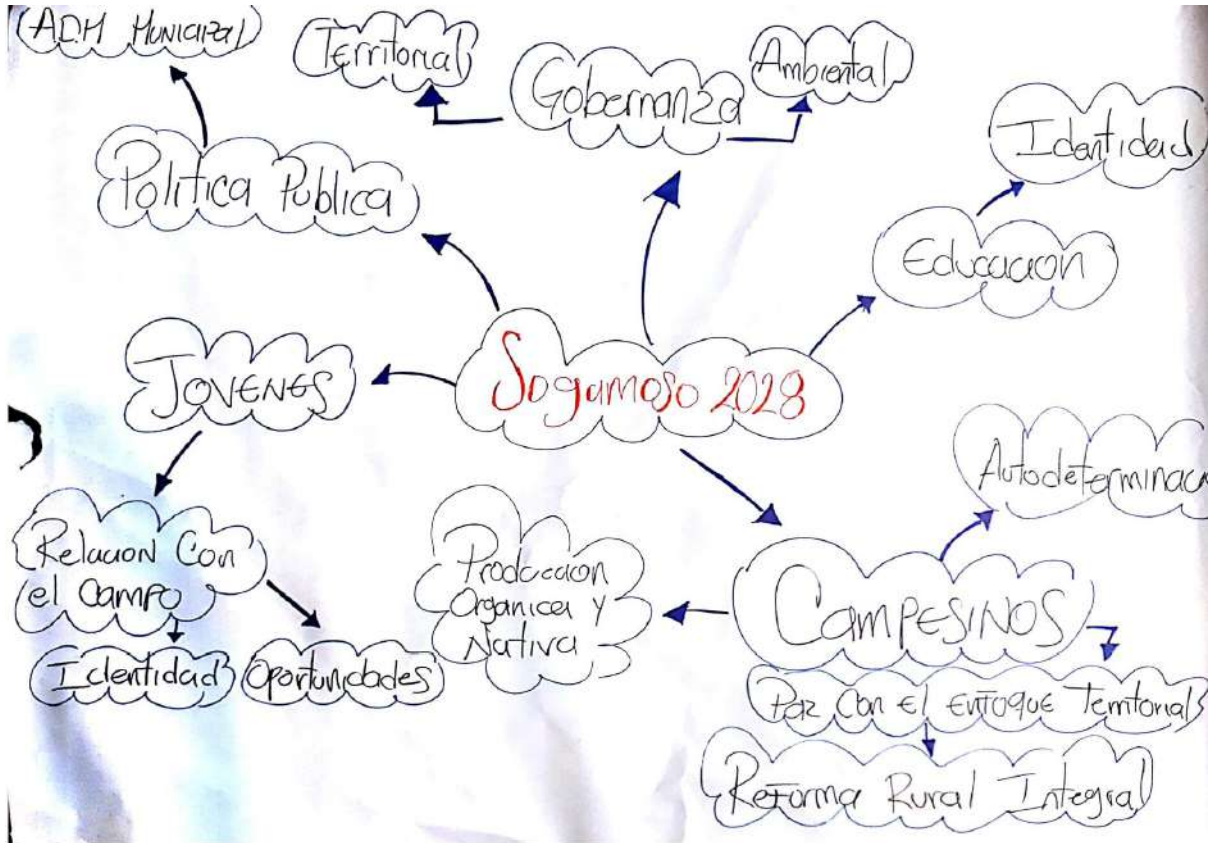 ADM Municipal
Territorial
Gobernanza
Ambiental
Identidad
Politica Publica
Educacion
Jovenes
Sogamoso 2028
Autodeterminac
Relacion Con
el Campo
Produccion
Organica y
Nativa
CAMPESINOS
Identidad
Oportunidades
Paz Con El Enfoque Territorial
Reforma Rural Integral